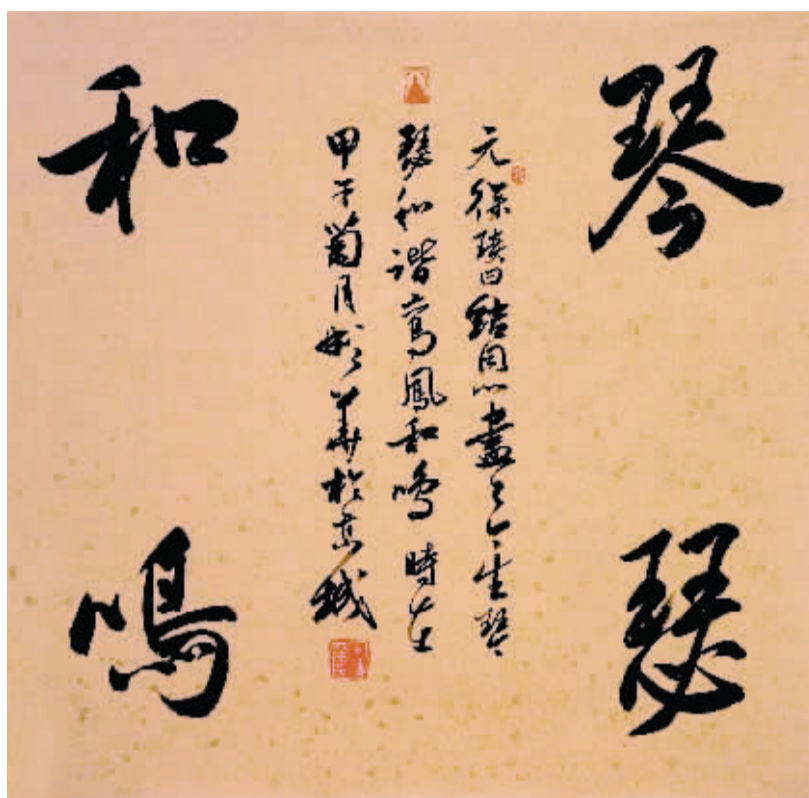 琴瑟
元徐琰曰結同心盡了今生琴
瑟和谐鸾鳳和鳴時在
甲午菊月 華於京城
和鳴